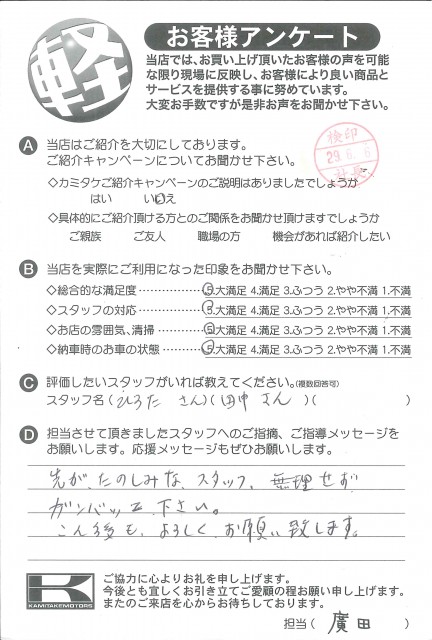 軽
お客様アンケート
当店では、お買い上げ頂いたお客様の声を可能
な限り現場に反映し、お客様により良い商品と
サービスを提供する事に努めています。
大変お手数ですが是非お声をお聞かせ下さい。
A 当店はご紹介を大切にしております。
ご紹介キャンペーンについてお聞かせ下さい。
検印
29.6.-6
社長
◇カミタケご紹介キャンペーンのご説明はありましたでしょうか
はい いいえ
◇具体的にご紹介頂ける方とのご関係をお聞かせ頂けますでしょうか
ご親族 ご友人 職場の方 機会があれば紹介したい
B 当店を実際にご利用になった印象をお聞かせ下さい。
◇総合的な満足度 ……………… 5.大満足 4.満足 3.ふつう 2.やや不満 1.不満
◇スタッフの対応 ……………… 5.大満足 4.満足 3.ふつう 2.やや不満 1.不満
◇お店の雰囲気、清掃 ………… 5.大満足 4.満足 3.ふつう 2.やや不満 1.不満
◇納車時のお車の状態 ………… 5.大満足 4.満足 3.ふつう 2.やや不満 1.不満
C 評価したいスタッフがいれば教えてください。(複数回答可)
スタッフ名 ( ひろた さん ) ( 田中 さん ) ( )
D 担当させて頂きましたスタッフへのご指摘、ご指導メッセージを
お願いします。応援メッセージもぜひお願いします。
先が、たのしみな、スタッフ、無理せず
ガンバッて下さい。
こん後も、よろしくお願い致します。
K
KAMITAKE MOTORS
ご協力に心よりお礼を申し上げます。
今後とも宜しくお引き立てご愛顧の程お願い申し上げます。
またのご来店を心からお待ちしております。
担当 ( 廣田 )